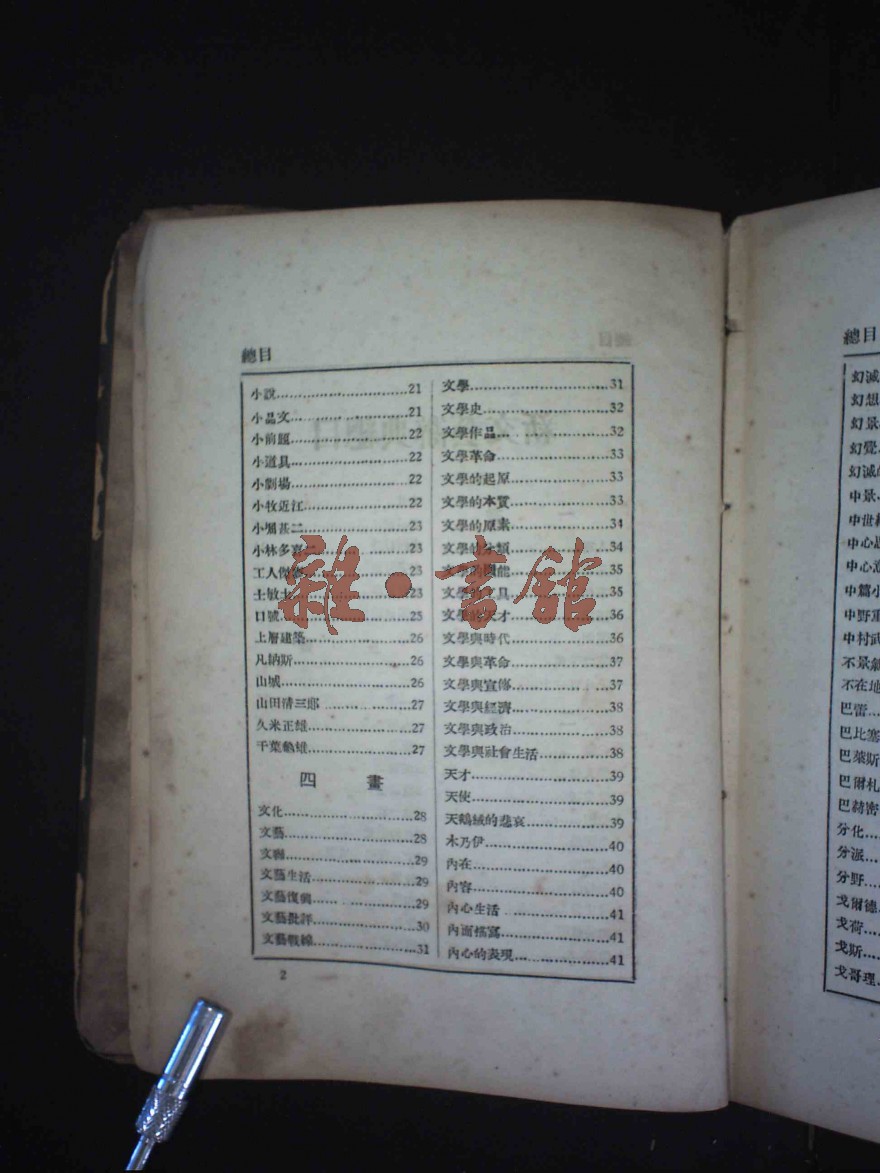 總目
小說 21
小品文 21
小前題 22
小道具 22
小劇場 22
小牧近江 22
小堀甚二 23
小林多喜二 23
工人 23
士敏土 23
口號 25
上層建築 26
凡納斯 26
山城 26
山田清三郎 27
久米正雄 27
千葉龜雄 27
四畫
文化 28
文藝 28
文聯 29
文藝生活 29
文藝復興 29
文藝批評 30
文藝戰線 31
文學 31
文學史 32
文學作品 32
文學革命 33
文學的起原 33
文學的本質 33
文學的原素 34
文學的分類 34
文學的機能 35
文學的工具 35
文學的天才 36
文學與時代 36
文學與革命 37
文學與宣傳 37
文學與經濟 38
文學與政治 38
文學與社會生活 38
天才 39
天使 39
天鵝絨的悲哀 39
木乃伊 40
內在 40
內容 40
內心生活 41
內面描寫 41
內心的表現 41
2
雜·書館
總目
幻滅
幻想
幻景
幻覺
幻滅的
中景
中世紀
中心思
中心意
中篇小
中野重
中村武
不景氣
不在地
巴雷
巴比塞
巴萊斯
巴爾札
巴赫密
分化
分派
分野
戈爾德
戈荷
戈斯
戈哥理